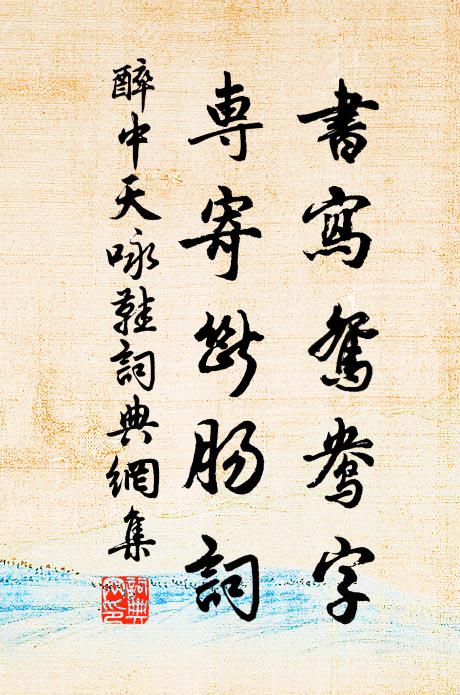 書寫鴛鴦字
專寄斷腸詞
醉中天咏鞋詞典網集